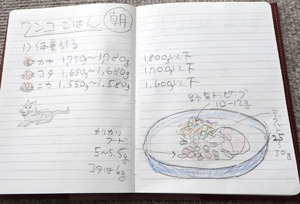 ワンコごはん 朝
1) 体重計る
カヤ 1,750g〜1,780g 1,800g以下
コタ 1,650g〜1,680g 1,700g以下
ニカ 1,550g〜1,580g 1,600g以下
カリカリ
フード
5〜5.5g
コタは6g
野菜トッピング
10〜12g
25
30g